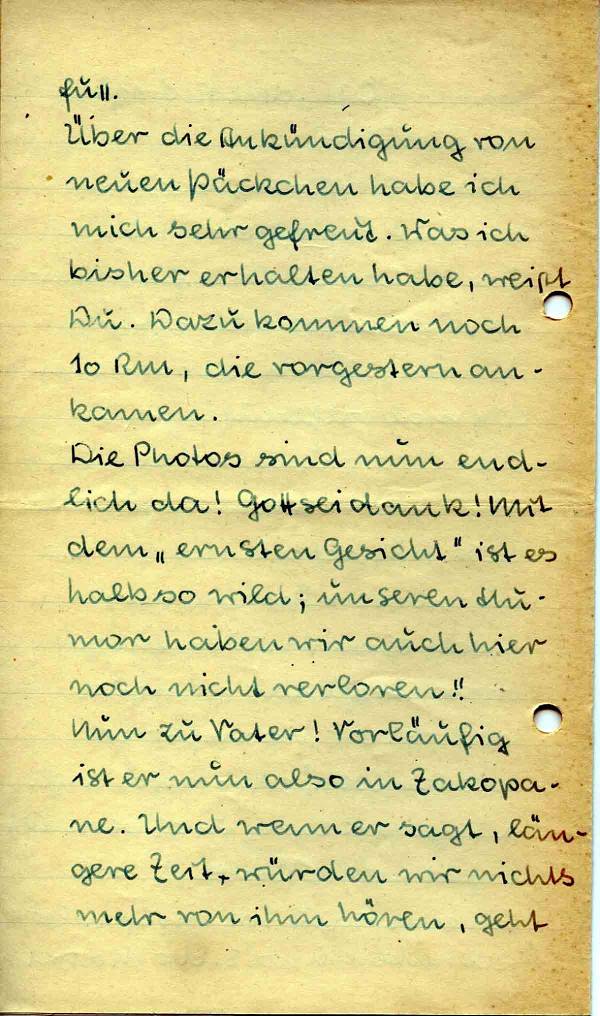 full.
Über die Ankündigung von
neuen Päckchen habe ich
mich sehr gefreut. Was ich
bisher erhalten habe, weißt
Du. Dazu kommen noch
10 Rm, die vorgestern an-
kamen.
Die Photos sind nun end-
lich da! Gottseidank! Mit
dem „ernsten Gesicht" ist es
halb so wild; unseren Hu-
mor haben wir auch hier
noch nicht verloren!!
Nun zu Vater! Vorläufig
ist er nun also in Zakopa-
ne. Und wenn er sagt, län-
gere Zeit, würden wir nichts
mehr von ihm hören, geht